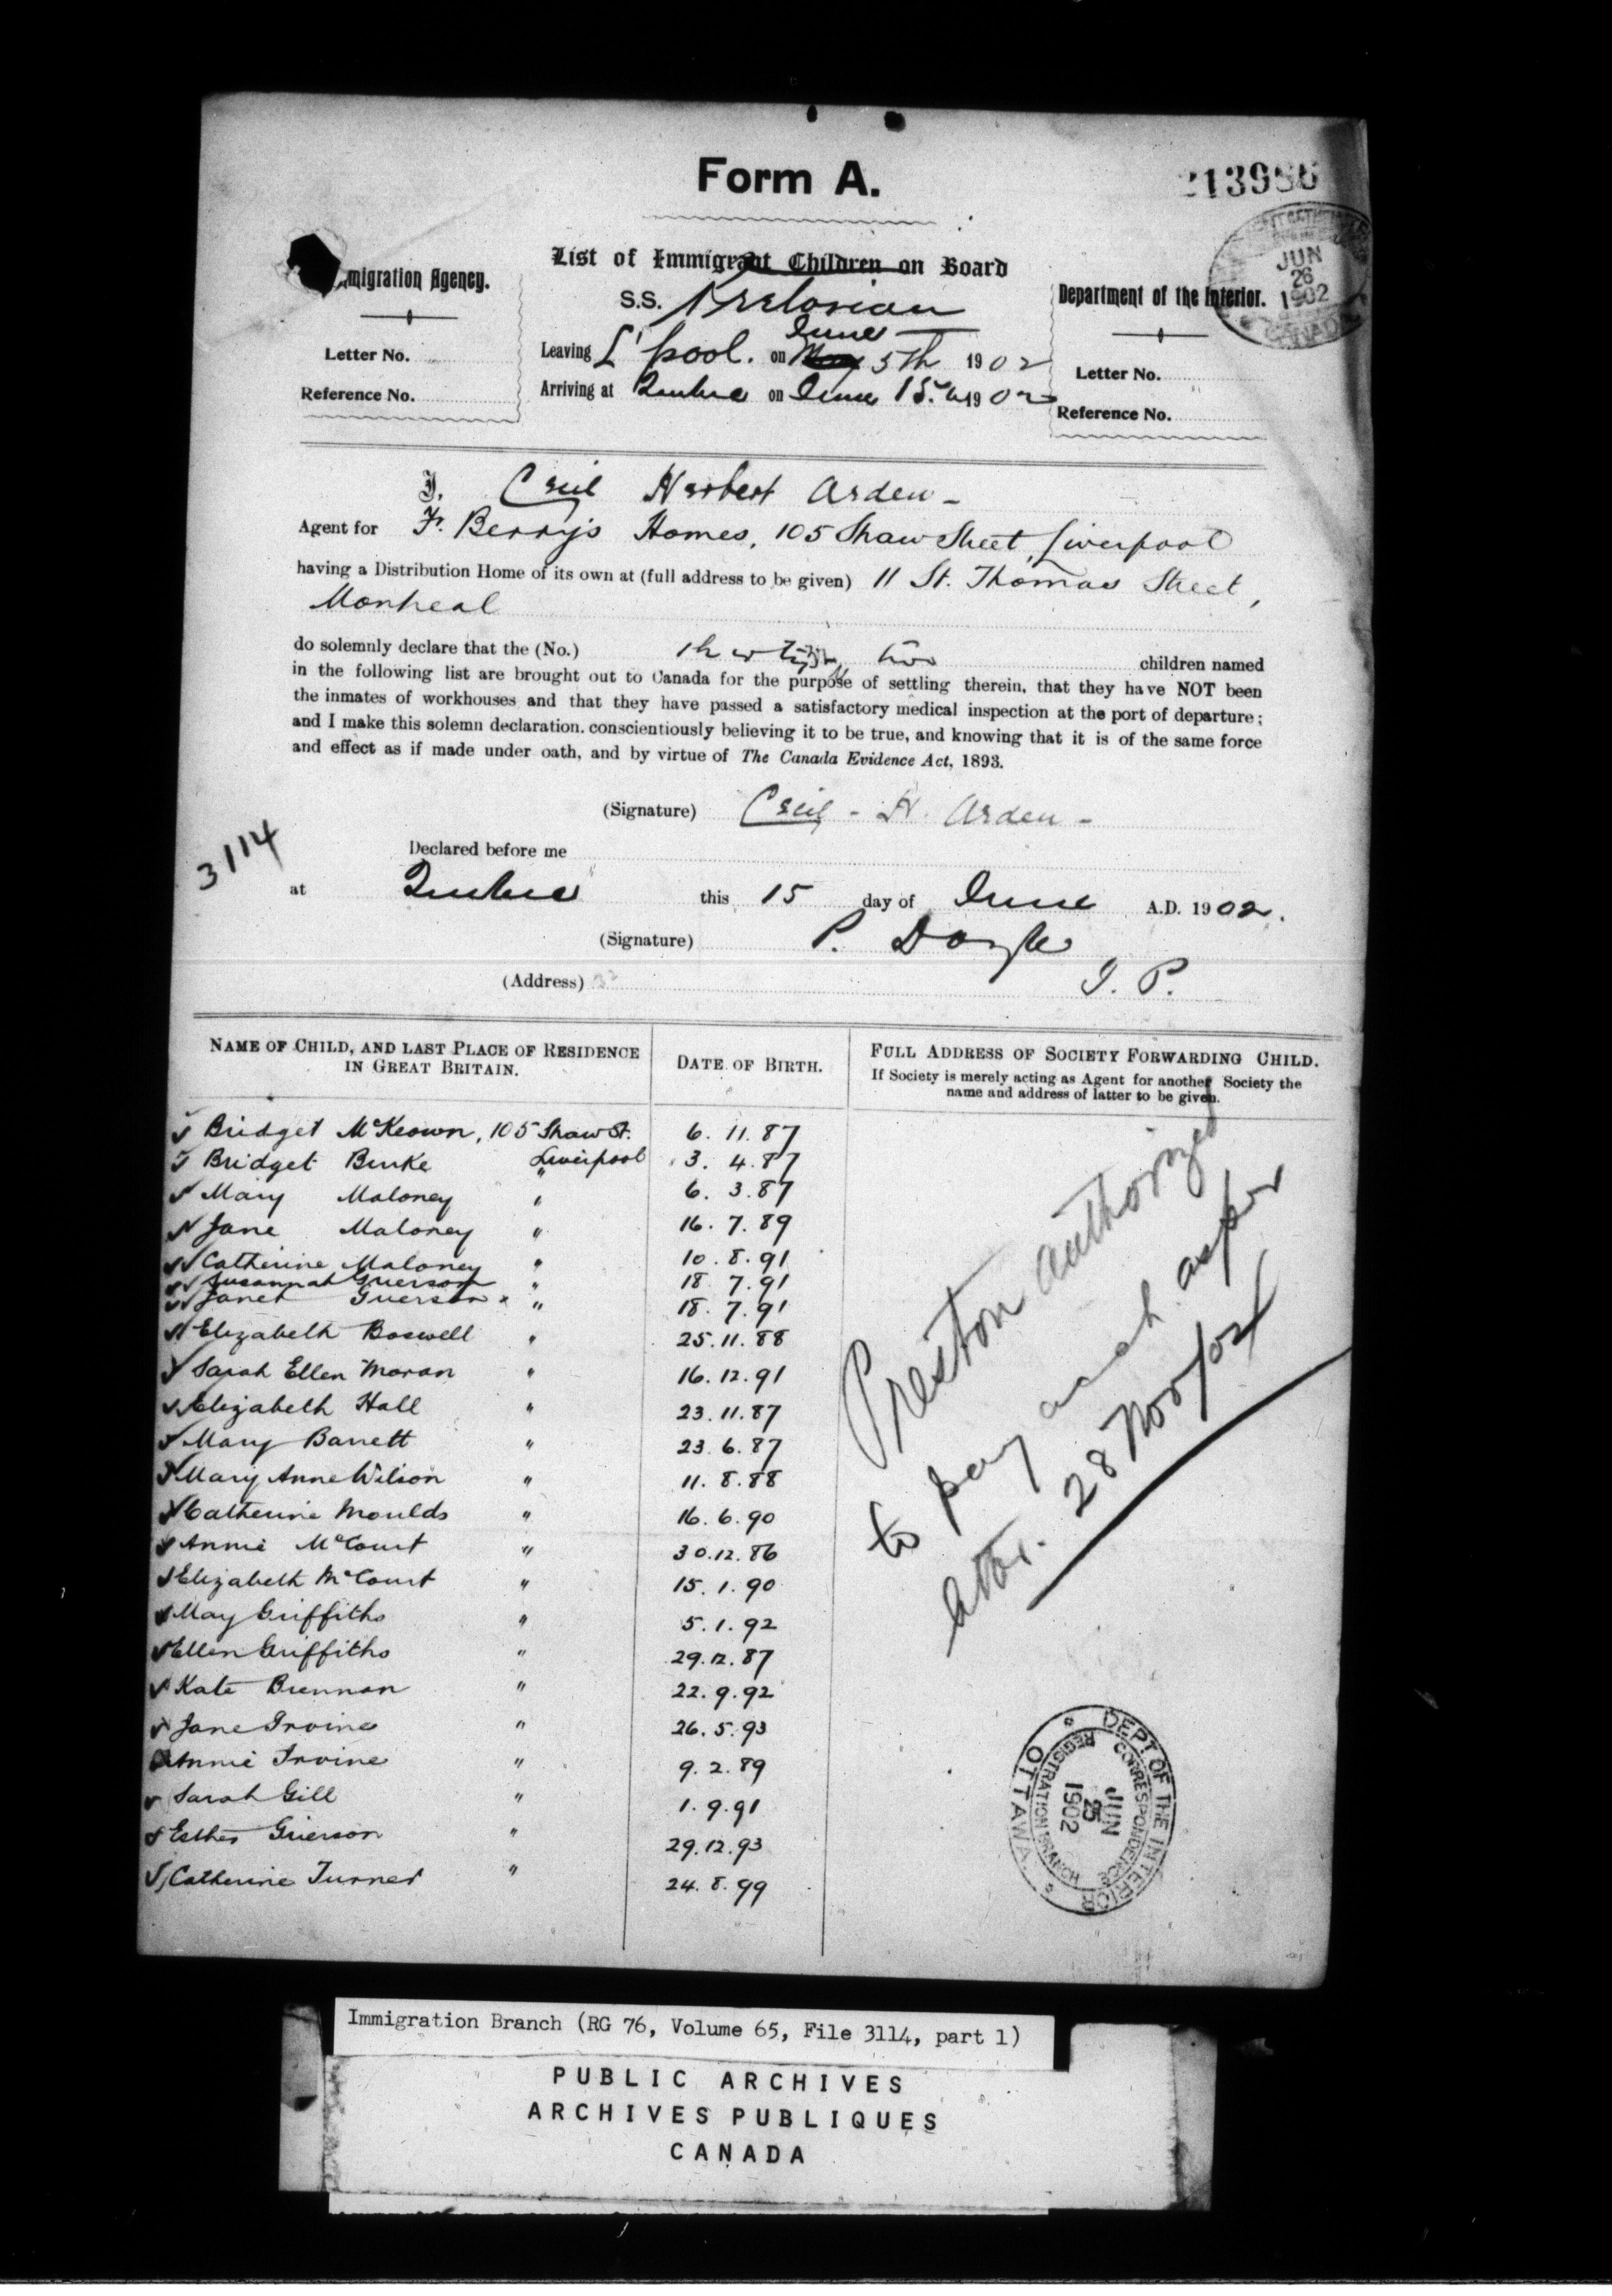 Form A.
213986
List of Immigrant Children on Board
migration Agency.
S.S. Pretorian
Department of the Interior.
JUN
26
1902
CANADA
Letter No.
Leaving L'pool. on June 5th 1902
Letter No.
Reference No.
Arriving at Quebec on June 15th 1902
Reference No.
I, Cecil Herbert Arden -
Agent for Fr. Berry's Homes, 105 Shaw Street, Liverpool
having a Distribution Home of its own at (full address to be given) 11 St. Thomas Street,
Montreal
do solemnly declare that the (No.) thirty two children named
in the following list are brought out to Canada for the purpose of settling therein, that they have NOT been
the inmates of workhouses and that they have passed a satisfactory medical inspection at the port of departure;
and I make this solemn declaration. conscientiously believing it to be true, and knowing that it is of the same force
and effect as if made under oath, and by virtue of The Canada Evidence Act, 1893.
(Signature) Cecil - H. Arden -
3114
Declared before me
at Quebec this 15 day of June A.D. 1902.
(Signature) P. Doyle
(Address) J. P.
NAME OF CHILD, AND LAST PLACE OF RESIDENCE
IN GREAT BRITAIN.
DATE OF BIRTH.
FULL ADDRESS OF SOCIETY FORWARDING CHILD.
If Society is merely acting as Agent for another Society the
name and address of latter to be given.
Bridget McKeown, 105 Shaw St. 6. 11. 87
Bridget Burke Liverpool 3. 4. 87
Mary Maloney " 6. 3. 87
Jane Maloney " 16. 7. 89
Catherine Maloney " 10. 8. 91
Susannah Guerson " 18. 7. 91
Janet Guerson " 18. 7. 91
Elizabeth Boswell " 25. 11. 88
Sarah Ellen Moran " 16. 12. 91
Elizabeth Hall " 23. 11. 87
Mary Barrett " 23. 6. 87
Mary Anne Wilson " 11. 8. 88
Catherine Moulds " 16. 6. 90
Annie McCourt " 30. 12. 86
Elizabeth McCourt " 15. 1. 90
May Griffiths " 5. 1. 92
Ellen Griffiths " 29. 12. 87
Kate Brennan " 22. 9. 92
Jane Irvine " 26. 5. 93
Annie Irvine " 9. 2. 89
Sarah Gill " 1. 9. 91
Esther Grierson " 29. 12. 93
Catherine Turner " 24. 8. 99
Preston authorized
to pay as per
28 Nov/02
DEPT OF THE INTERIOR
OTTAWA
CORRESPONDENCE
REGISTRATION BRANCH
JUN
25
1902
Immigration Branch (RG 76, Volume 65, File 3114, part 1)
PUBLIC ARCHIVES
ARCHIVES PUBLIQUES
CANADA